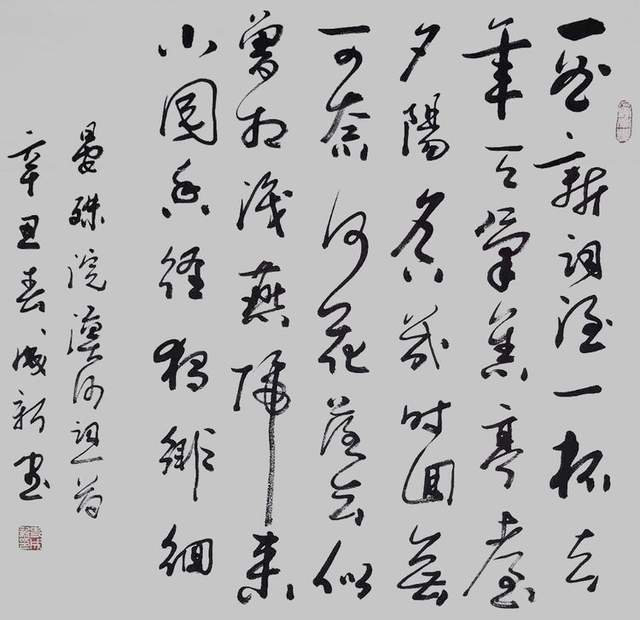 一曲新詞酒一杯去
年天氣舊亭臺
夕陽西下幾时回無
可奈何花落去似
曾相識燕歸來
小園香徑獨徘徊
晏殊浣溪沙詞一首
辛丑春成新書